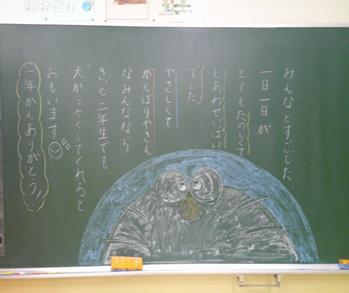 みんなとすごした
一日一日が
とてもたのしくて
しあわせいっぱい
でした。
やさしくて
がんばりやさん
なみんななら
きっと二年生でも
大かつやくしてくれると
おもいます
一年かんありがとう!